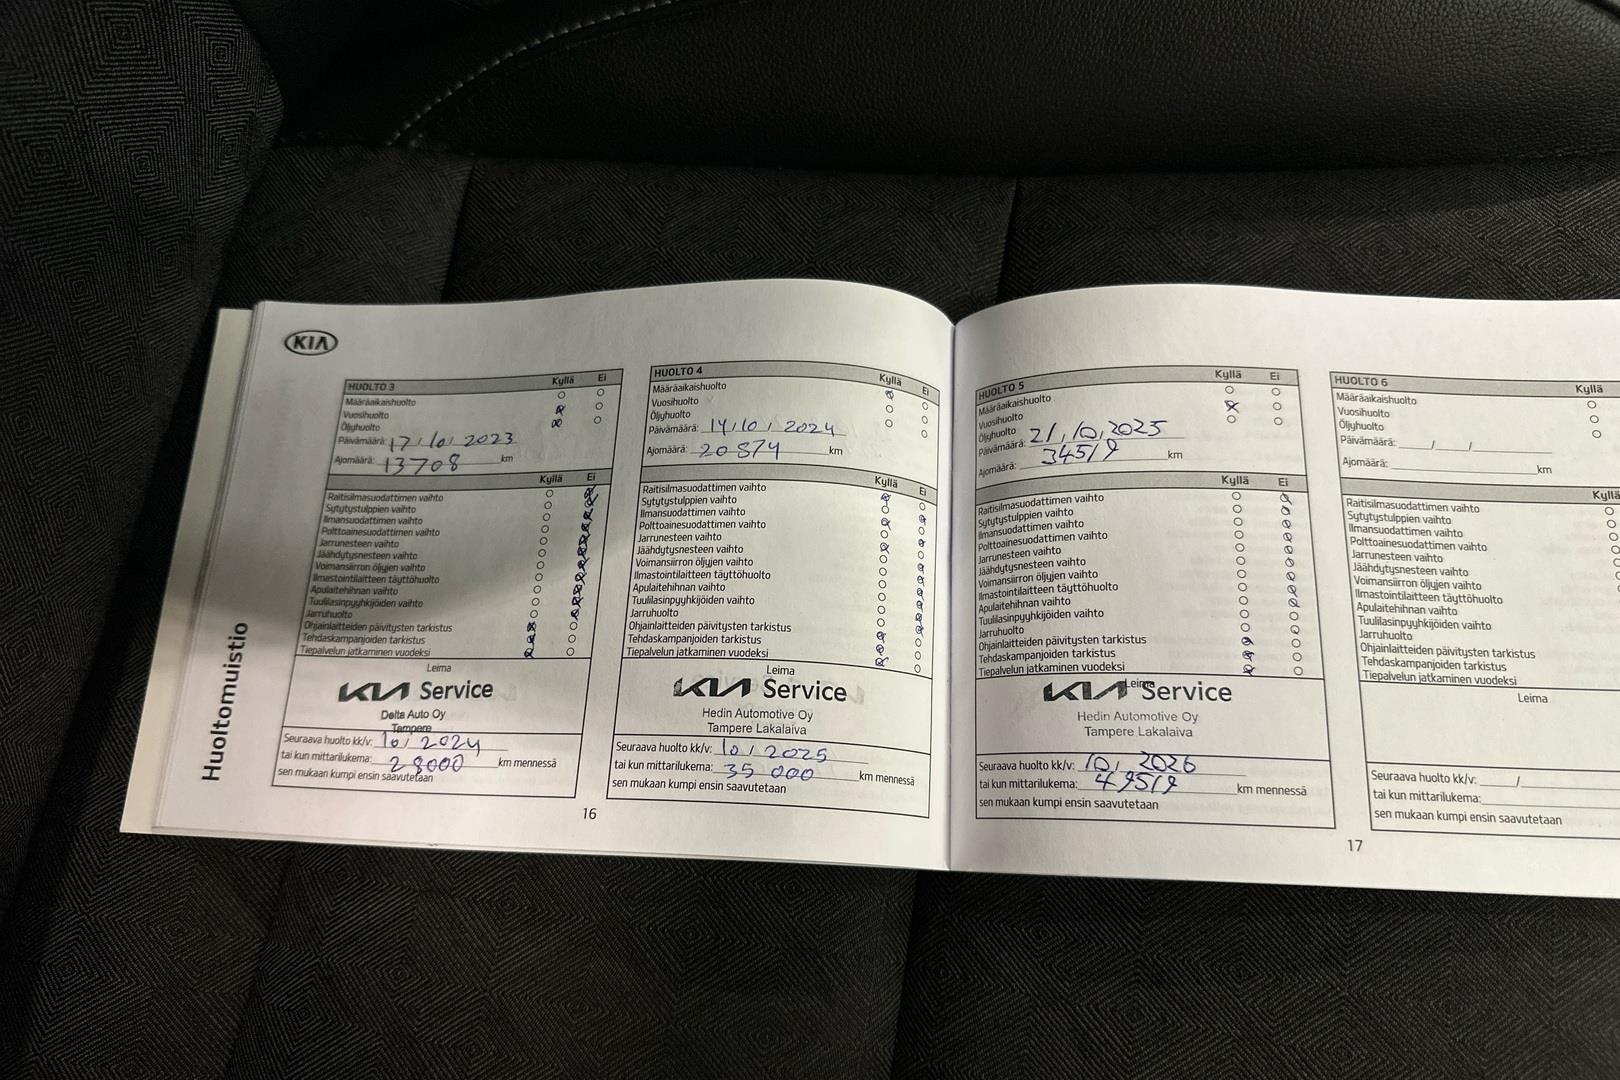 KIA
Huoltomuistio
HUOLTO 3 Kyllä Ei
Määräaikaishuolto
Vuosihuolto
Öljyhuolto
Päivämäärä: 17/10/2023
Ajomäärä: 13708 km
Kyllä Ei
Raitisilmasuodattimen vaihto
Sytytystulppien vaihto
Ilmansuodattimen vaihto
Polttoainesuodattimen vaihto
Jarrunesteen vaihto
Jäähdytysnesteen vaihto
Voimansiirron öljyjen vaihto
Ilmastointilaitteen täyttöhuolto
Apulaitehihnan vaihto
Tuulilasinpyyhkijöiden vaihto
Jarruhuolto
Ohjainlaitteiden päivitysten tarkistus
Tehdaskampanjoiden tarkistus
Tiepalvelun jatkaminen vuodeksi
Leima
KIA Service
Delta Auto Oy
Tampere
Seuraava huolto kk/v: 10/2024
tai kun mittarilukema: 28000 km mennessä
sen mukaan kumpi ensin saavutetaan
HUOLTO 4 Kyllä Ei
Määräaikaishuolto
Vuosihuolto
Öljyhuolto
Päivämäärä: 14/10/2024
Ajomäärä: 20874 km
Kyllä Ei
Raitisilmasuodattimen vaihto
Sytytystulppien vaihto
Ilmansuodattimen vaihto
Polttoainesuodattimen vaihto
Jarrunesteen vaihto
Jäähdytysnesteen vaihto
Voimansiirron öljyjen vaihto
Ilmastointilaitteen täyttöhuolto
Apulaitehihnan vaihto
Tuulilasinpyyhkijöiden vaihto
Jarruhuolto
Ohjainlaitteiden päivitysten tarkistus
Tehdaskampanjoiden tarkistus
Tiepalvelun jatkaminen vuodeksi
Leima
KIA Service
Hedin Automotive Oy
Tampere Lakalaiva
Seuraava huolto kk/v: 10/2025
tai kun mittarilukema: 35 000 km mennessä
sen mukaan kumpi ensin saavutetaan
16
HUOLTO 5 Kyllä Ei
Määräaikaishuolto
Vuosihuolto
Öljyhuolto
Päivämäärä: 21/10/2025
Ajomäärä: 34519 km
Kyllä Ei
Raitisilmasuodattimen vaihto
Sytytystulppien vaihto
Ilmansuodattimen vaihto
Polttoainesuodattimen vaihto
Jarrunesteen vaihto
Jäähdytysnesteen vaihto
Voimansiirron öljyjen vaihto
Ilmastointilaitteen täyttöhuolto
Apulaitehihnan vaihto
Tuulilasinpyyhkijöiden vaihto
Jarruhuolto
Ohjainlaitteiden päivitysten tarkistus
Tehdaskampanjoiden tarkistus
Tiepalvelun jatkaminen vuodeksi
Leima
KIA Service
Hedin Automotive Oy
Tampere Lakalaiva
Seuraava huolto kk/v: 10/2026
tai kun mittarilukema: 49519 km mennessä
sen mukaan kumpi ensin saavutetaan
HUOLTO 6 Kyllä
Määräaikaishuolto
Vuosihuolto
Öljyhuolto
Päivämäärä: / /
Ajomäärä: km
Kyllä
Raitisilmasuodattimen vaihto
Sytytystulppien vaihto
Ilmansuodattimen vaihto
Polttoainesuodattimen vaihto
Jarrunesteen vaihto
Jäähdytysnesteen vaihto
Voimansiirron öljyjen vaihto
Ilmastointilaitteen täyttöhuolto
Apulaitehihnan vaihto
Tuulilasinpyyhkijöiden vaihto
Jarruhuolto
Ohjainlaitteiden päivitysten tarkistus
Tehdaskampanjoiden tarkistus
Tiepalvelun jatkaminen vuodeksi
Leima
Seuraava huolto kk/v: /
tai kun mittarilukema:
sen mukaan kumpi ensin saavutetaan
17